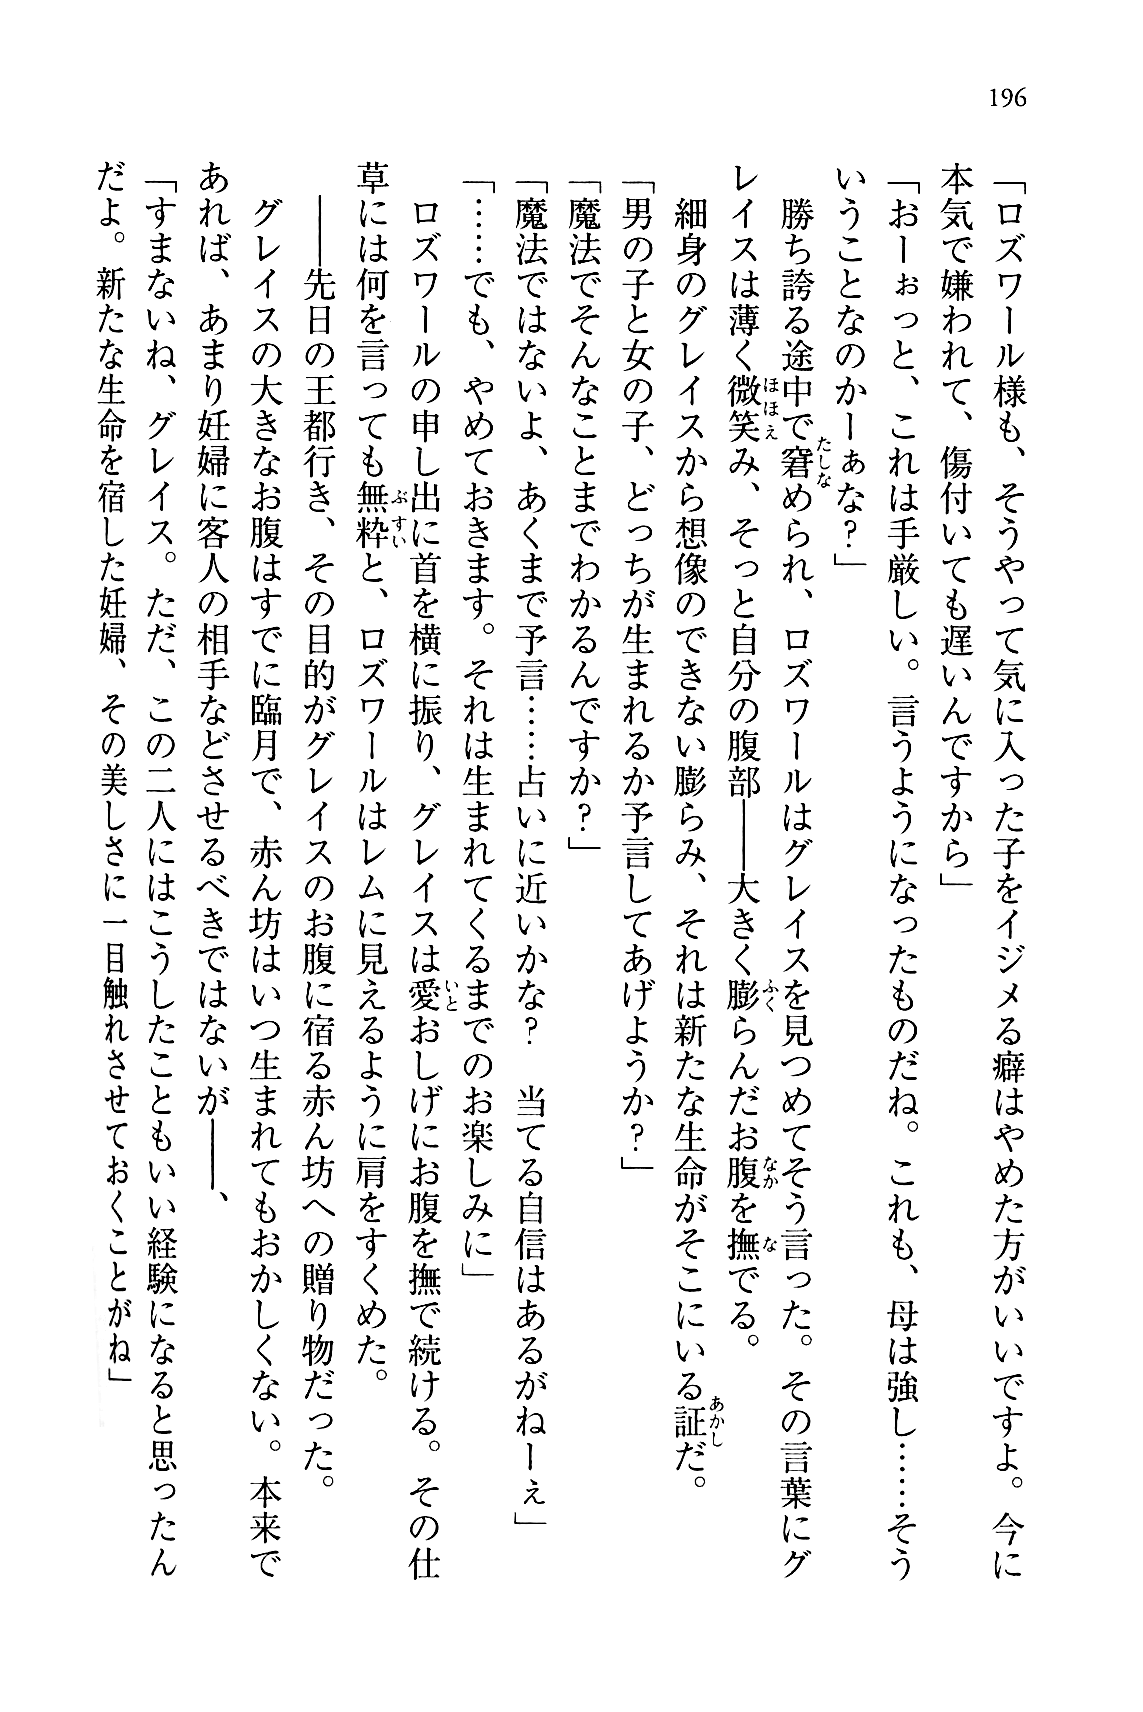 196
「ロズワール様も、そうやって気に入った子をイジメる癖はやめた方がいいですよ。今に
本気で嫌われて、傷付いても遅いんですから」
「おーぉっと、これは手厳しい。言うようになったものだね。これも、母は強し……そう
いうことなのかーぁな？」
　勝ち誇る途中で窘められ、ロズワールはグレイスを見つめてそう言った。その言葉にグ
レイスは薄く微笑み、そっと自分の腹部――大きく膨らんだお腹を撫でる。
　細身のグレイスから想像のできない膨らみ、それは新たな生命がそこにいる証だ。
「男の子と女の子、どっちが生まれるか予言してあげようか？」
「魔法でそんなことまでわかるんですか？」
「魔法ではないよ、あくまで予言……占いに近いかな？　当てる自信はあるがねーぇ」
「……でも、やめておきます。それは生まれてくるまでのお楽しみに」
　ロズワールの申し出に首を横に振り、グレイスは愛おしげにお腹を撫で続ける。その仕
草には何を言っても無粋と、ロズワールはレムに見えるように肩をすくめた。
　――先日の王都行き、その目的がグレイスのお腹に宿る赤ん坊への贈り物だった。
　グレイスの大きなお腹はすでに臨月で、赤ん坊はいつ生まれてもおかしくない。本来で
あれば、あまり妊婦に客人の相手などさせるべきではないが――、
「すまないね、グレイス。ただ、この二人にはこうしたこともいい経験になると思ったん
だよ。新たな生命を宿した妊婦、その美しさに一目触れさせておくことがね」